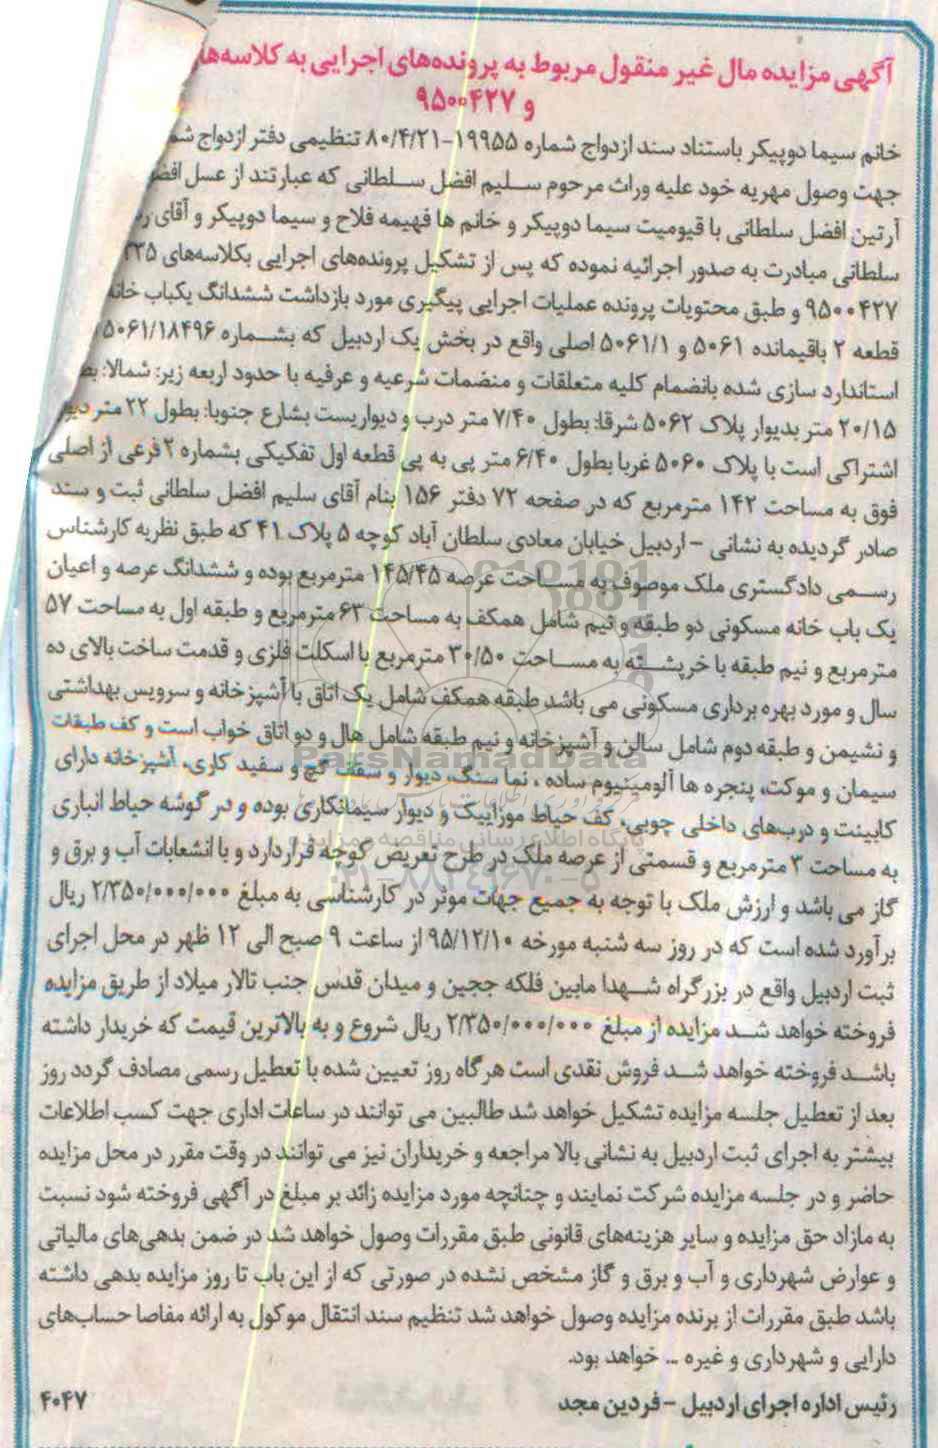 آگهی مزایده مال غیر منقول مربوط به پرونده‌های اجرایی به کلاسه‌های
و ۹۵۰۰۴۲۷
خانم سیما دوپیکر باستناد سند ازدواج شماره ۱۹۹۵۵-۸۰/۴/۲۱ تنظیمی دفتر ازدواج
جهت وصول مهریه خود علیه وراث مرحوم سلیم افضل سلطانی که عبارتند از عسل
آرتین افضل سلطانی با قیومیت سیما دوپیکر و خانم ها فهیمه فلاح و سیما دوپیکر و آقای
سلطانی مبادرت به صدور اجرائیه نموده که پس از تشکیل پرونده‌های اجرایی بکلاسه‌های
۹۵۰۰۴۲۷ و طبق محتویات پرونده عملیات اجرایی پیگیری مورد بازداشت ششدانگ یکباب خانه
قطعه ۲ باقیمانده ۵۰۶۱ و ۵۰۶۱/۱ اصلی واقع در بخش یک اردبیل که بشماره ۵۰۶۱/۱۸۴۹۶
استاندارد سازی شده بانضمام کلیه متعلقات و منضمات شرعیه و عرفیه با حدود اربعه زیر: شمالا:
۲۰/۱۵ متر بدیوار پلاک ۵۰۶۲ شرقا: بطول ۷/۴۰ متر درب و دیواریست بشارع جنوبا: بطول ۲۲ متر
اشتراکی است با پلاک ۵۰۶۰ غربا بطول ۶/۴۰ متر پی به پی قطعه اول تفکیکی بشماره ۲ فرعی از اصلی
فوق به مساحت ۱۴۲ مترمربع که در صفحه ۷۲ دفتر ۱۵۶ بنام آقای سلیم افضل سلطانی ثبت و سند
صادر گردیده به نشانی – اردبیل خیابان معادی سلطان آباد کوچه ۵ پلاک ۴۱ که طبق نظریه کارشناس
رسمی دادگستری ملک موصوف به مساحت عرصه ۱۴۵/۴۵ مترمربع بوده و ششدانگ عرصه و اعیان
یک باب خانه مسکونی دو طبقه و نیم شامل همکف به مساحت ۶۳ مترمربع و طبقه اول به مساحت ۵۷
مترمربع و نیم طبقه با خرپشته به مساحت ۳۰/۵۰ مترمربع با اسکلت فلزی و قدمت ساخت بالای ده
سال و مورد بهره برداری مسکونی می باشد طبقه همکف شامل یک اتاق با آشپزخانه و سرویس بهداشتی
و نشیمن و طبقه دوم شامل سالن و آشپزخانه و نیم طبقه شامل هال و دو اتاق خواب است و کف طبقات
سیمان و موکت، پنجره ها آلومینیوم ساده ، نما سنگ، دیوار و سقف گچ و سفید کاری، آشپزخانه دارای
کابینت و درب‌های داخلی چوبی، کف حیاط موزاییک و دیوار سیمانکاری بوده و در گوشه حیاط انباری
به مساحت ۳ مترمربع و قسمتی از عرصه ملک در طرح تعریض کوچه قرار دارد و با انشعابات آب و برق و
گاز می باشد و ارزش ملک با توجه به جمیع جهات موثر در کارشناسی به مبلغ ۲/۳۵۰/۰۰۰/۰۰۰ ریال
برآورد شده است که در روز سه شنبه مورخه ۹۵/۱۲/۱۰ از ساعت ۹ صبح الی ۱۲ ظهر در محل اجرای
ثبت اردبیل واقع در بزرگراه شهدا مابین فلکه ججین و میدان قدس جنب تالار میلاد از طریق مزایده
فروخته خواهد شد مزایده از مبلغ ۲/۳۵۰/۰۰۰/۰۰۰ ریال شروع و به بالاترین قیمت که خریدار داشته
باشد فروخته خواهد شد فروش نقدی است هرگاه روز تعیین شده با تعطیل رسمی مصادف گردد روز
بعد از تعطیل جلسه مزایده تشکیل خواهد شد طالبین می توانند در ساعات اداری جهت کسب اطلاعات
بیشتر به اجرای ثبت اردبیل به نشانی بالا مراجعه و خریداران نیز می توانند در وقت مقرر در محل مزایده
حاضر و در جلسه مزایده شرکت نمایند و چنانچه مورد مزایده زائد بر مبلغ در آگهی فروخته شود نسبت
به مازاد حق مزایده و سایر هزینه‌های قانونی طبق مقررات وصول خواهد شد در ضمن بدهی‌های مالیاتی
و عوارض شهرداری و آب و برق و گاز مشخص نشده در صورتی که از این باب تا روز مزایده بدهی داشته
باشد طبق مقررات از برنده مزایده وصول خواهد شد تنظیم سند انتقال موکول به ارائه مفاصا حساب‌های
دارایی و شهرداری و غیره ... خواهد بود.
رئیس اداره اجرای اردبیل – فردین مجد
۴۰۴۷
ParsNamadData
پایگاه اطلاع رسانی مناقصه و مزایده
۰۲۱-۸۸۳۴۹۶۷۰-۵